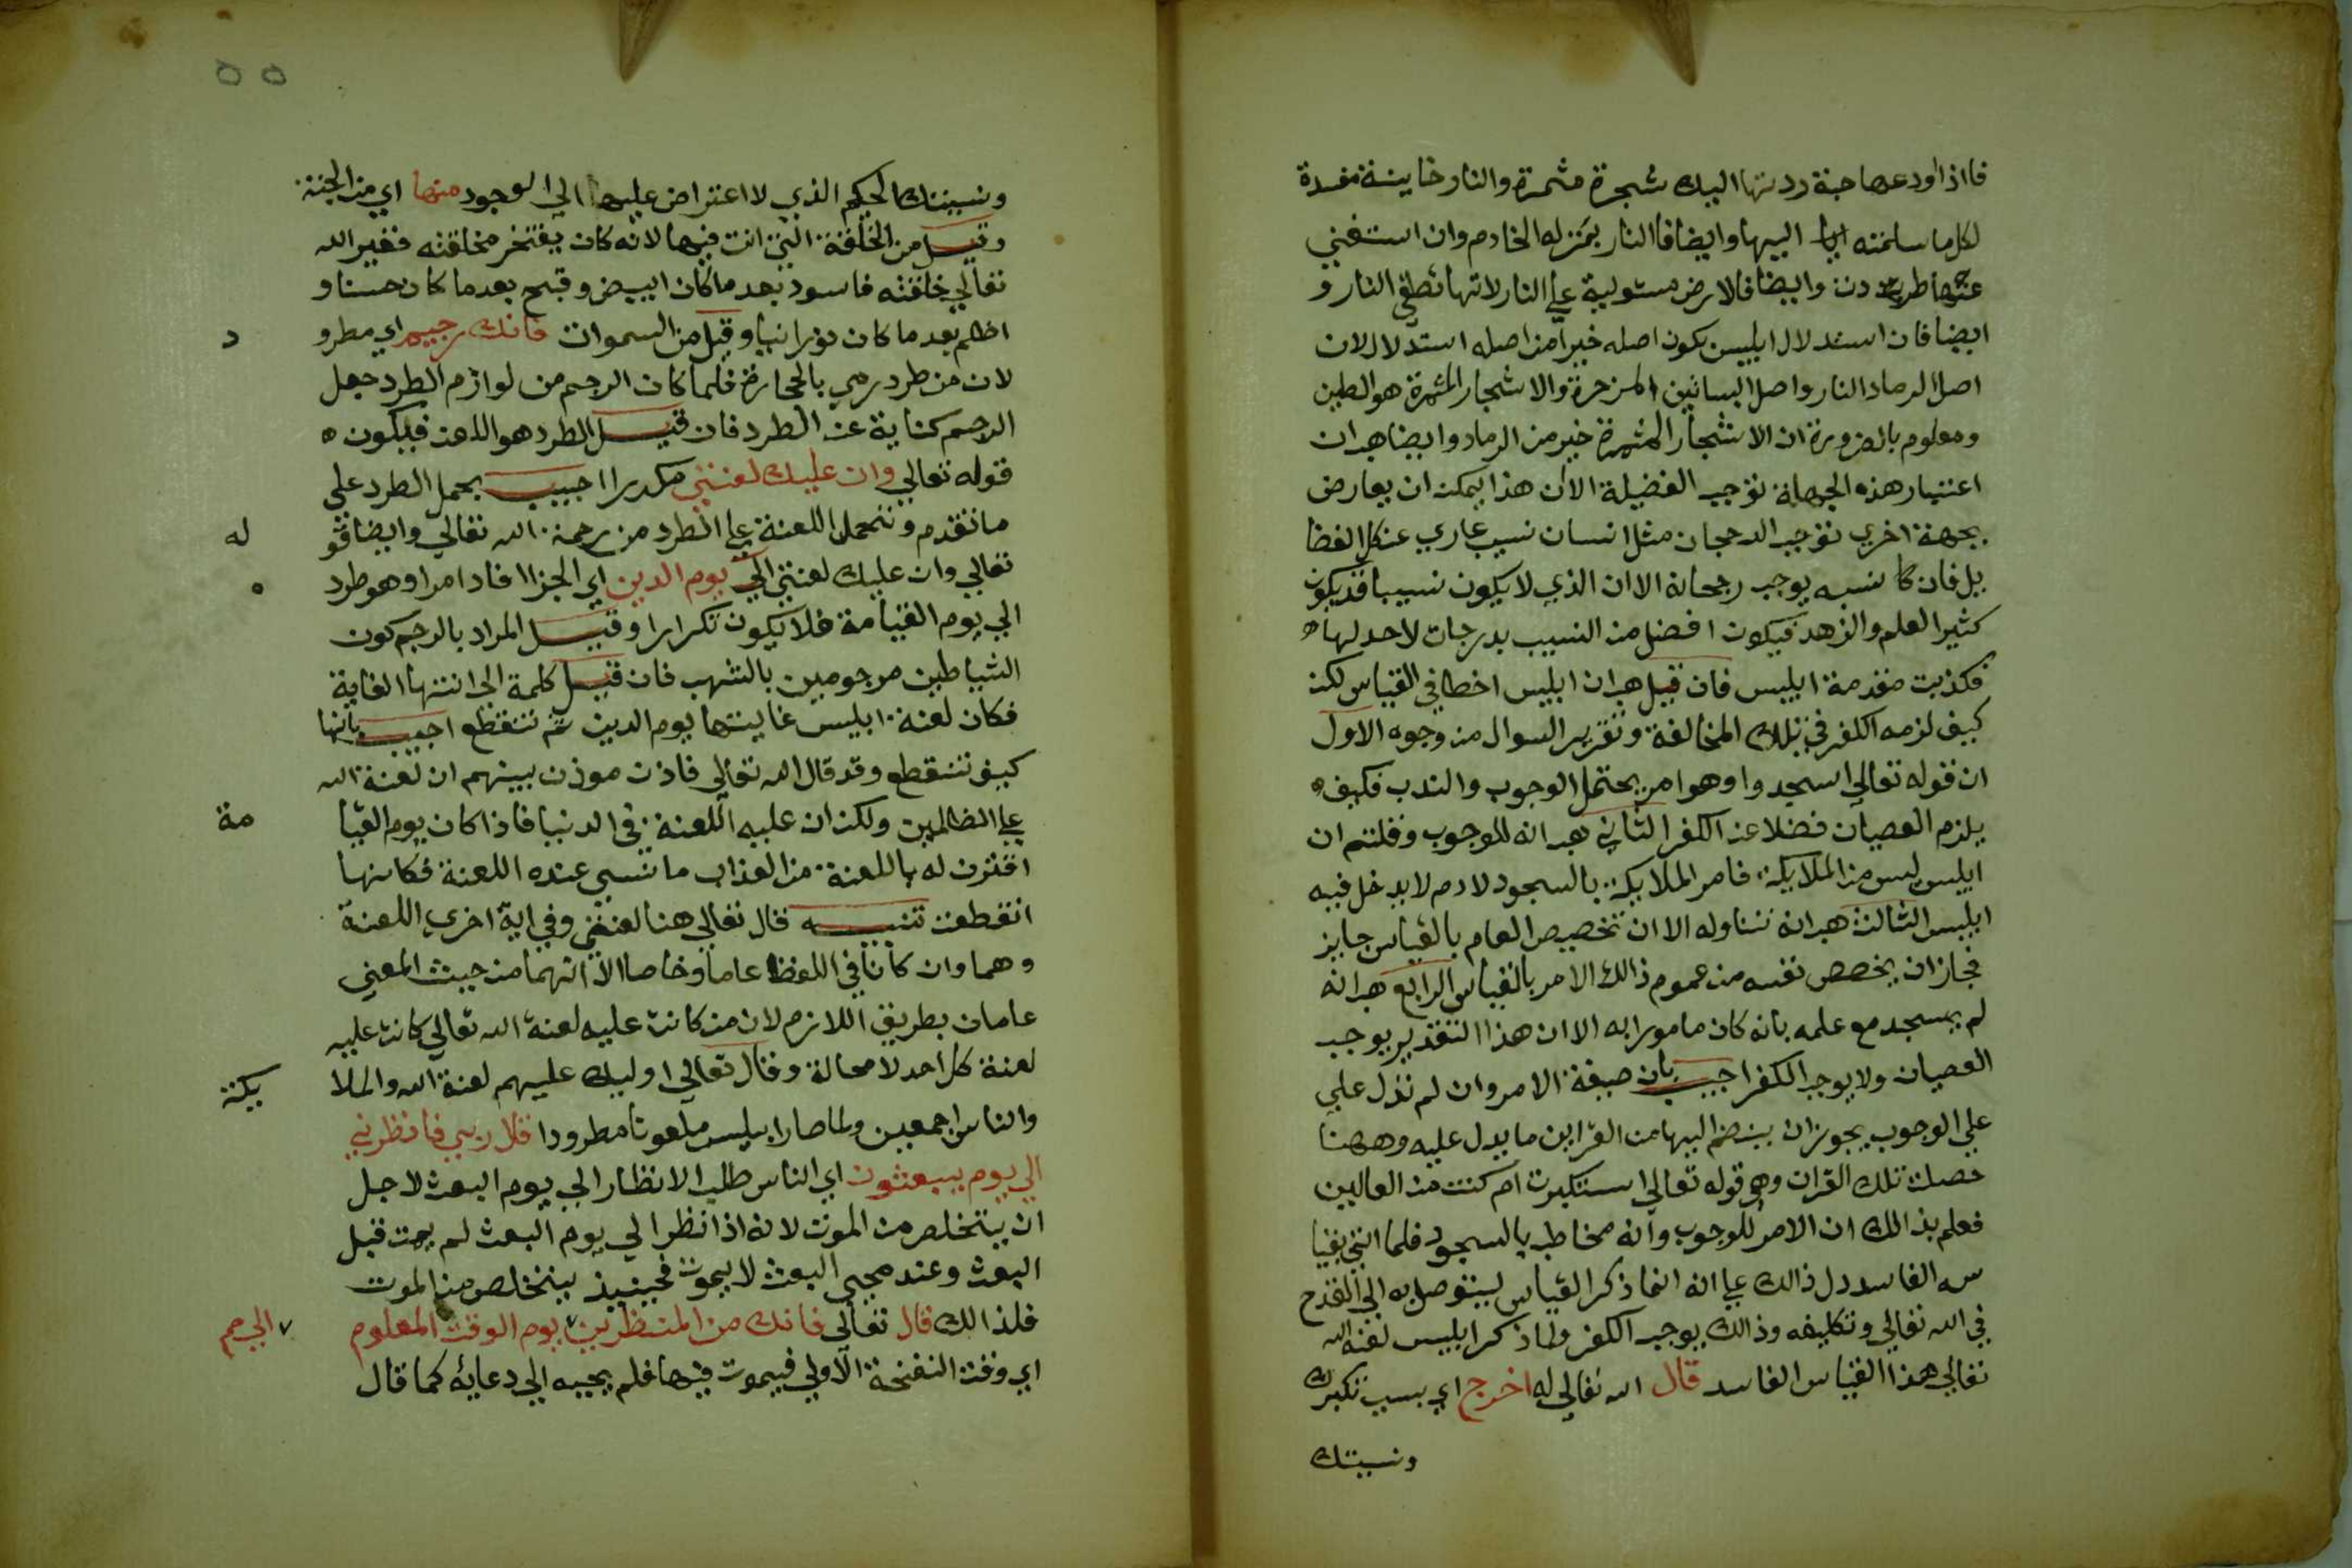 فااذا اودعها حبة ردتها اليك شجرة مثمرة والنار خاينة مفسدة
لكل ما سلمته اليها وايضا فالنار بمنزله الخادم وان استغني
عنها طردت وايضا فالارض مستولية علي النار لانها تطفي النار و
ايضا فان استدلال ابليس بكون اصله خيرا من اصله استدلال لان
اصل الرماد النار واصل البساتين المزهرة والاشجار المثمرة هو الطين
ومعلوم بالضرورة ان الاشجار المثمرة خير من الرماد وايضا هب ان
اعتبار هذه الجهة توجب الفضيلة الا ان هذا يمكن ان يعارض
بجهة اخري توجب الرجحان مثل انسان نسيب عاري عن كل الفضا
يل فان كا نسبه يوجب رجحانه الا ان الذي لا يكون نسيبا قد يكون
كثير العلم والزهد فيكون افضل من النسيب بدرجات لا حد لها ه
فكذبت مقدمة ابليس فان قيل هب ان ابليس اخطا في القياس لكن
كيف لزمه الكفر في تلك المخالفة وتقرير السوال من وجوه الاول
ان قوله تعالي اسجدوا وهو امر يحتمل الوجوب والندب فكيف ه
يلزم العصيان فضلا عن الكفر الثاني هب انه للوجوب وقلتم ان
ابليس ليس من الملايكة فامر الملايكة بالسجود لادم لا يدخل فيه
ابليس الثالث هب انه تناوله الا ان تخصيص العام بالقياس جايز
فجاز ان يخصص نفسه من عموم ذالك الامر بالقياس الرابع هب انه
لم يسجد مع علمه بانه كان مامورا به الا ان هذا التقدير يوجب
العصيان ولا يوجب الكفر اجيب بان صيغة الامر وان لم تدل علي
علي الوجوب يجوز ان ينضم اليها من القراين ما يدل عليه وههنا
حصلت تلك القران وهو قوله تعالي استكبرت ام كنت من العالين
فعلم بذالك ان الامر للوجوب وانه مخاطب بالسجود فلما اتي بقيا
سه الفاسد دل ذالك علي انه انما ذكر القياس ليتوصل به الي القدح
في الله تعالي وتكليفه وذالك يوجب الكفر ولما ذكر ابليس لعنه الله
تعالي هذا القياس الفاسد قال الله تعالي له اخرج اي بسبب تكبرك
ونسبتك
٥٥
ونسبتك الحكم الذي لا اعتراض عليها الي الوجود منها اي من الجنة
وقيل من الخلقة التي انت فيها لانه كان يفتخر مخلقته فغير الله
تعالي خلقته فاسود بعد ما كان ابيض وقبح بعد ما كان حسنا و
اظلم بعد ما كان نورانيا وقيل من السموات فانك رجيم اي مطرو
د
لان من طرد رمي بالحجارة فلما كان الرجم من لوازم الطرد جعل
الرجم كناية عن الطرد فان قيل الطرد هو اللعن فيكون ه
قوله تعالي وان عليك لعنتي مكررا اجيب بحمل الطرد علي
ما تقدم ونتحمل اللعنة علي الطرد من رحمة الله تعالي وايضا قو
له
تعالي وان عليك لعنتي الي يوم الدين اي الجزا افاد امرا وهو طرد
ه
الي يوم القيامة فلا يكون تكرارا وقيل المراد بالرجم كون
الشياطين مرجومين بالشهب فان قيل كلمة الي انتها الغاية
فكان لعنة ابليس غايتها يوم الدين ثم تنقطع اجيب بانها
كيف تنقطع وقد قال الله تعالي فاذن موذن بينهم ان لعنة الله
علي الظالمين ولكن ان عليه اللعنة في الدنيا فاذا كان يوم القيا
مة
اقترن له باللعنة من العذاب ما تنسي عنده اللعنة فكانها
انقطعت تنبيه قال تعالي هنا لعنتي وفي اية اخري اللعنة
وهما وان كانا في اللفظ عاما وخاصا الا انهما من حيث المعني
عامان بطريق اللازم لان من كانت عليه لعنة الله تعالي كانت عليه
لعنة كل احد لا محالة وقال تعالي اوليك عليهم لعنة الله والملا
يكة
والناس اجمعين ولما صار ابليس ملعونا مطرودا قال ربي فانظرني
الي يوم يبعثون اي الناس طلب الانظار الي يوم البعث لاجل
ان يتخلص من الموت لانه اذا نظر الي يوم البعث لم يمت قبل
البعث وعند مجي البعث لا يموت فحينيذ يتخلص من الموت
فلذالك قال تعالي فانك من المنظرين يوم الوقت المعلوم
الي صح
اي وقت النفخة الاولي فيموت فيها فلم يجيبه الي دعايه كما قال